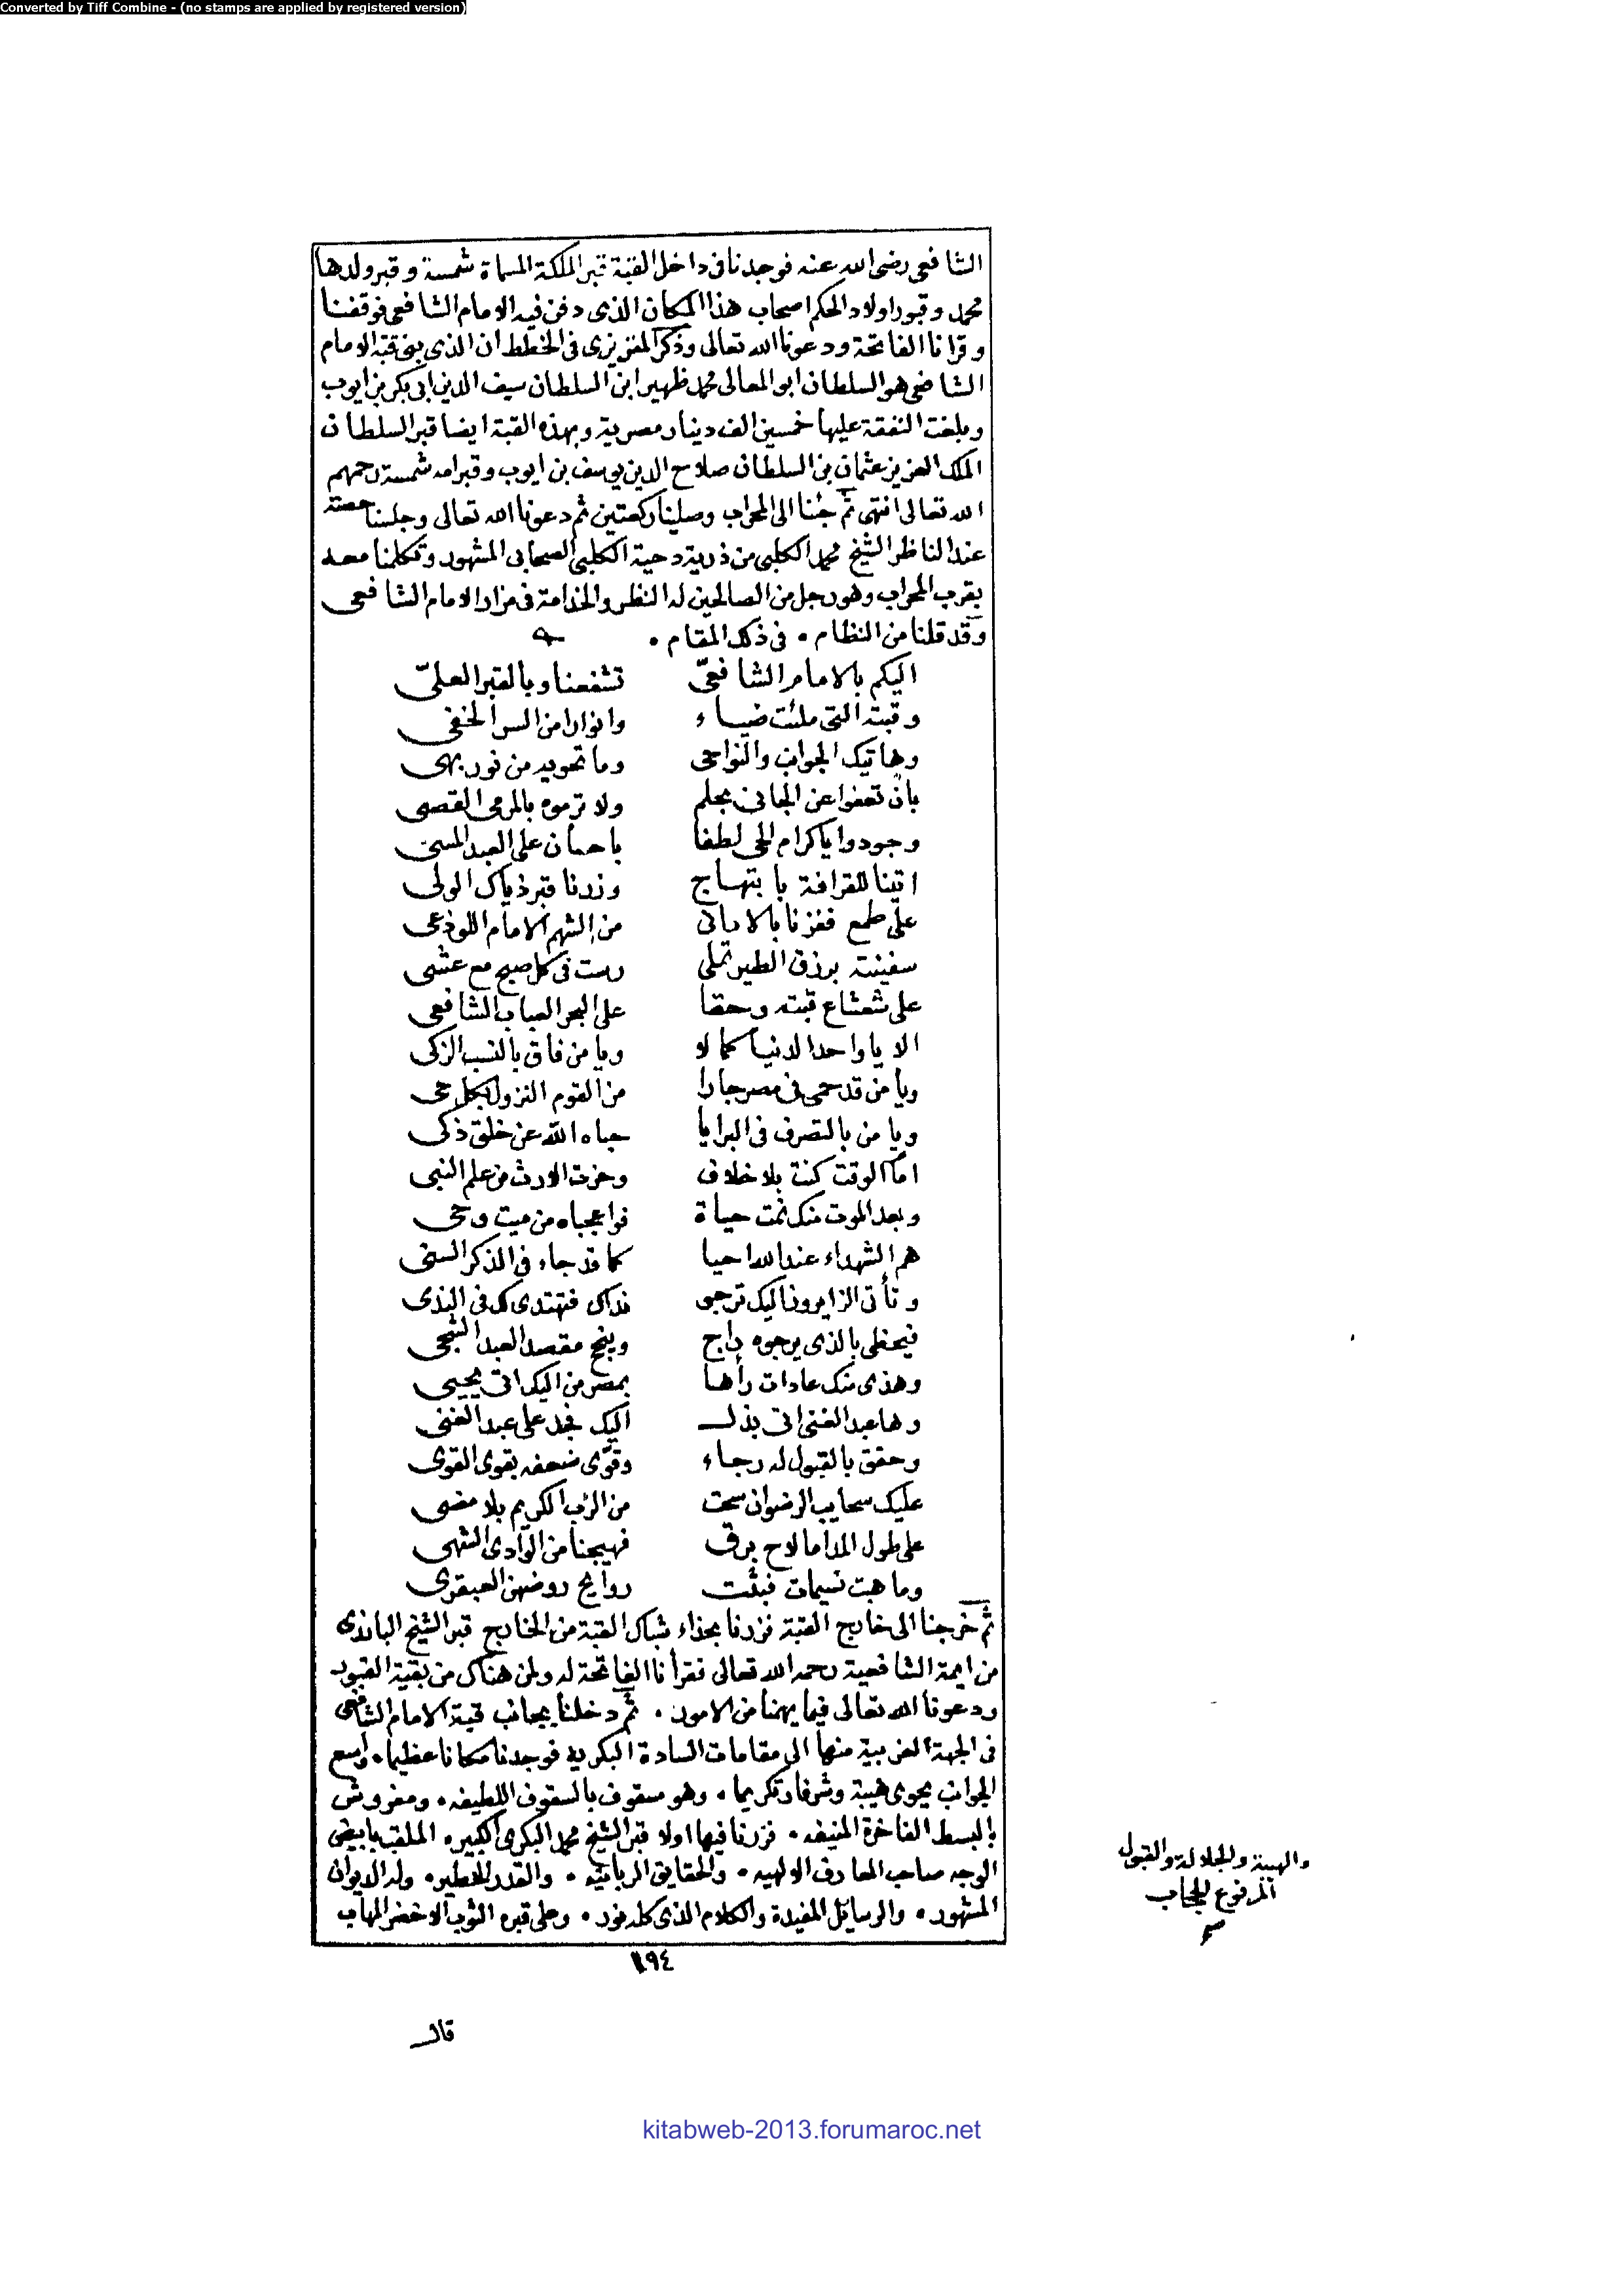 Converted by Tiff Combine - (no stamps are applied by registered version)
الشافعي رضي الله عنه فوجدنا في داخل القبة قبر الملكة المسماة شمسة وقبر ولدها
محمد وقبور اولاد الحكم اصحاب هذا المكان الذي دفن فيه الامام الشافعي فوقفنا
وقرانا الفاتحة ودعونا الله تعالى وذكر المقريزي في الخطط ان الذي بنى قبة الامام
الشافعي هو السلطان ابو المعالي محمد ظهير ابن السلطان سيف الدين ابي بكر بن ايوب
وبلغت النفقة عليها خمسين الف دينار مصرية وبهذه القبة ايضا قبر السلطان
الملك العزيز عثمان بن السلطان صلاح الدين يوسف بن ايوب وقبر امه شمسة رحمهم
الله تعالى انتهى ثم جئنا الى المحراب وصلينا ركعتين ثم دعونا الله تعالى وجلسنا حصة
عند الناظر الشيخ محمد الكلبي من ذرية دحية الكلبي الصحابي المشهور وتكلمنا معه
بقرب المحراب وهو رجل من الصالحين له النظر والخدامة في مزار الامام الشافعي
وقد قلنا من النظام . في ذلك المقام .
اليكم بالامام الشافعيّ تشفعنا وبالقبر العليّ
وقبته التي ملئت ضياء وانوارا من السر الخفي
وهاتيك الجوانب والنواحي وما تحويه من نور بهي
بأن تعفوا عن الجاني بحلم ولا ترموه بالمرمى القصي
وجودوا ياكرام الحي لطفا باحسان على العبد المسئ
اتينا للقرافة بابتهاج وزرنا قبر ذياك الولي
على طمع ففزنا بالاماني من الشهم الامام اللوذعي
سفينته برزق الطير تملى رست في كل صبح مع عشي
على شعشاع قبته وحقا على البحر العباب الشافعي
الا يا واحد الدنيا كمالا ويا من فاق بالنسب الزكي
ويا من قد حمى في مصر جارا من القوم النزول بكل حي
ويا من بالتصرف في البرايا حباه الله عن خلق ذكي
امام الوقت كنت بلا خلاف وحزت الارث من علم النبي
وبعد الموت منك نمت حياة فواعجباه من ميت وحي
هم الشهداء عند الله احيا كما قد جاء في الذكر السني
وتأتي الزايرون اليك ترجو نداك فتهتدى كل في الندي
فيحظى بالذي يرجوه راج وينجح مقصد العبد الشجي
وهذي منك عادات رأها بمصر من اليك اتى يحيي
وها عبد الغني اتى بذل اليك فجد على عبد الغني
وحقق بالقبول له رجاء وقوّى ضعفه بقوى القوي
عليك سحايب الرضوان سحت من الرب الكريم بلا مضي
على طول المدا ما لاح برق فهيجنا من الوادي الشهي
وما هبت نسيمات فبثت روايح روضهن العبقري
ثم خرجنا الى خارج القبة فزرنا بحذاء شباك القبة من الخارج قبر الشيخ
من ايمة الشافعية رحمه الله تعالى فقرأنا الفاتحة له ولمن هناك من بقية القبور
ودعونا الله تعالى فيما يهمنا من الامور . ثم دخلنا بجانب قبة الامام الشافعي
في الجهة الغربية منها الى مقامات السادة البكريه فوجدنا مكانا عظيما . واسع
الجوانب يحوى هيبة وشرفا وتكريما . وهو مسقوف بالسقوف اللطيفه . ومفروش
بالبسط الفاخرة المنيفه . فزرنا فيها اولا قبر الشيخ محمد البكري الكبير . الملقب بابيض
الوجه صاحب المعارف الالهيه . والحقايق الربانيه . والقدر الخطير . وله الديوان
المشهور . والرسايل المفيدة والكلام الذي كله نور . وعلى قبره الثوب الاخضر المهاب
والهيبة والجلالة والقبول
المرفوع الحجاب
١٩٤
قال
kitabweb-2013.forumaroc.net